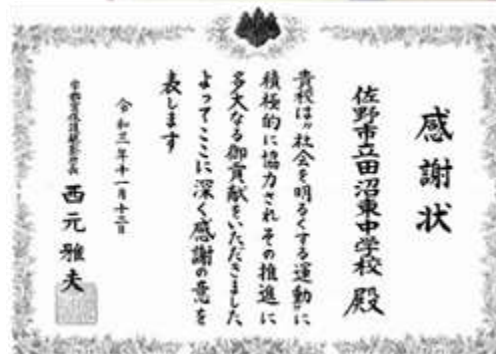 感謝状
佐野市立田沼東中学校 殿
貴校は“社会を明るくする運動”に
積極的に協力されその推進に
多大なる御貢献をいただきました
よってここに深く感謝の意を
表します
令和三年十一月十二日
宇都宮保護観察所長 西元雅夫